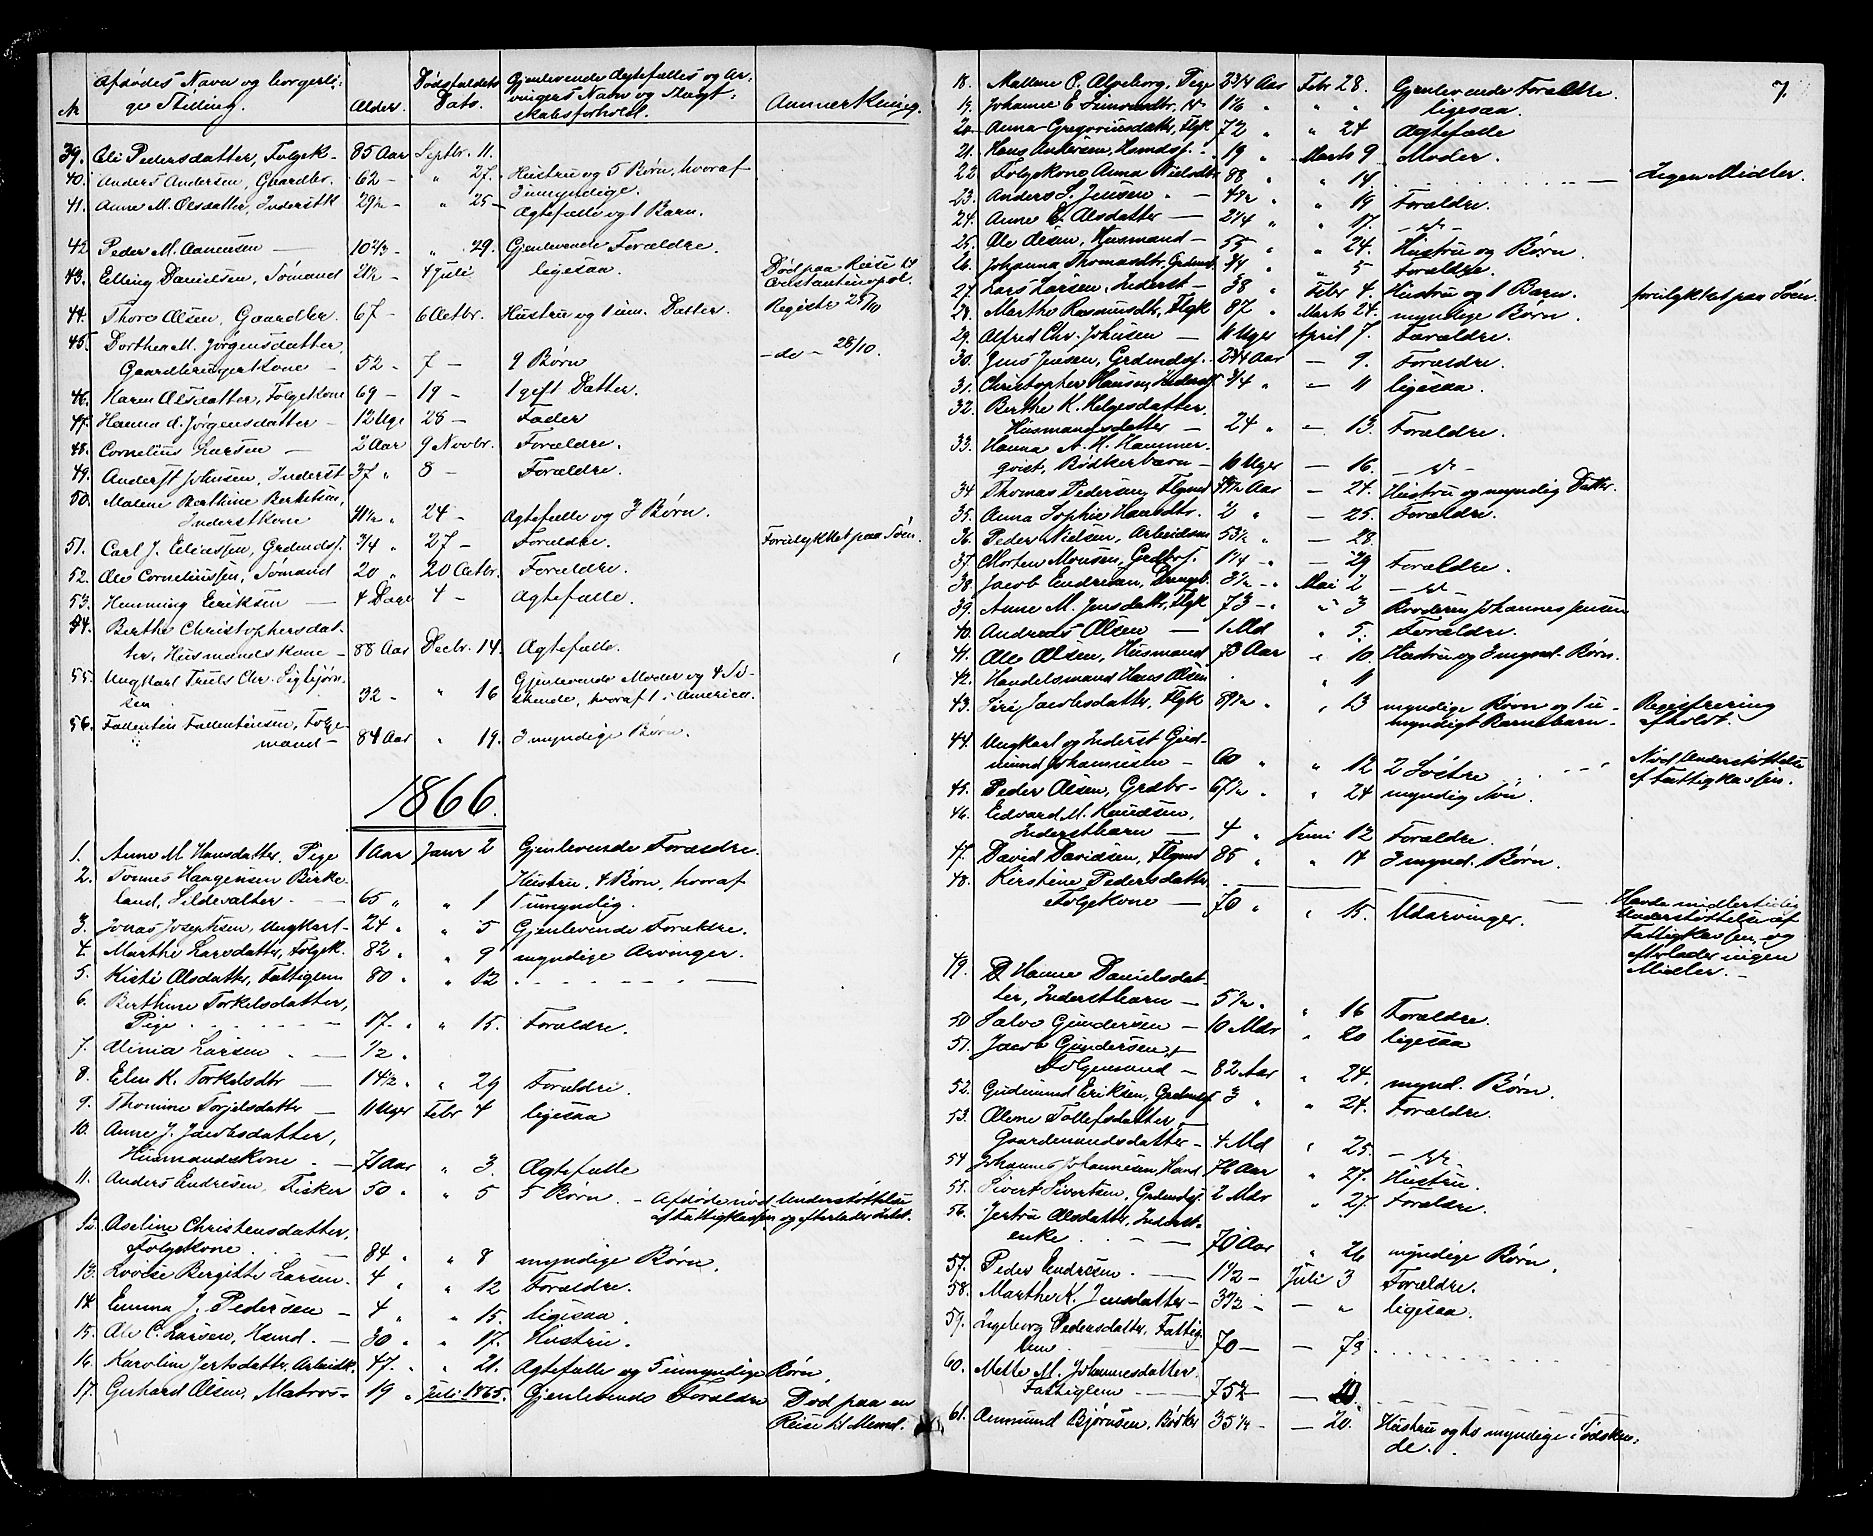 № Afdødes Navn og borgerli- Alder. Dødsfaldets Gjenlevende Ægtefælles og Ar- Anmerkning.
ge Stilling. Dato. vingers Navn og Slægt-
skabsforhold.
39. Pedersdatter, Folgek- 85 Aar Septbr. 11.
40. Anders Andersen, Gaardbr. 62 - " 27. Hustru og 5 Børn, hvoraf
3 umyndige.
41. Anne M. Olsdatter, Inderstk 29½ - " 25 - Ægtefælle og 1 Barn.
42 Peder M. Aanensen — 10 2/3 - " 29. Gjenlevende Forældre.
43. Elling Danielsen, Sømand 21½ - 4 Juli ligesaa. Død paa Reise til
Constantinopel.
44. Thore Olsen, Gaardbr. 67 - 6 Octbr. Hustru og 1 um. Datter. Registr 25/10
45. Dorthea M. Jørgensdatter,
Gaardbrugerkone — 52 - 7 - 9 Børn - do - 28/10.
46. Karen Olsdatter, Folgekone 69 - 19 - 1 gift Datter.
47. Hanna A. Jørgensdatter - 12 Uge 28 - Fader
48. Cornelius Larsen — 2 Aar 9 Novbr. Forældre.
49. Johnsen, Inderst 37 " 8 - Forældre.
50. Malene Berthine Berthelsen,
Inderstkone 41½ " 24 - Ægtefælle og 3 Børn.
51. Carl J. Eliassen, Grdmdsf. 3/4 " 27 - Forældre.
52. Ole Corneliussen, Sømand 20 " 20 Octbr. Forældre. Forulykket paa Søen.
53. Hemming Eriksen — 4 Dage 4 - Ægtefælle.
54. Berthe Christophersdat-
ter, Husmandskone - 88 Aar Decbr. 14. Ægtefælle.
55. Ungkarl Truls Chr. Sigbjørn-
sen 32 - " 16 Gjenlevende Moder og 4 Sø-
skende, hvoraf 1 i America.
56. Fallentin Fallentinsen, Folge-
mand - 84 Aar " 19. 3 myndige Børn.
1866.
1. Anne M. Hansdatter, Pige 1 Aar Janr 2 Gjenlevende Forældre.
2. Tønnes Haagensen Birke-
land, Sildesalter. — 65 " " 1 Hustru, 4 Børn, hvoraf
1 umyndig.
3. Jonas Josephsen, Ungkarl - 24 " " 5 Gjenlevende Forældre.
4. Marthe Larsdatter, Folgek. 82 " " 9 myndige Arvinger.
5. Kisti Olsdatter, Fattiglem 80 " " 12 - - - - -
6. Berthine Torkelsdatter,
Pige - - - 17 " " 15. Forældre.
7. Larsen - — 1/2 "
8. Elen K. Torkelsdtr — 14½ " " 29 Forældre
9. Thomine Torjelsdatter — 11 Uger Febr 4 ligesaa
10. Anne J. Jacobsdatter,
Husmandskone - — 71 Aar " 3. Ægtefælle
11. Anders Endresen, Fisker 50 " " 5 5 Børn. - Afdøde nød Understøttelse
af Fattigkassen og efterlader Intet.
12 Aseline Christensdatter,
Folgekone - - 84 " " 8 myndige Børn.
13. Lovise Bergitte Larsen. 4 " " 12 Forældre.
14 Emma J. Pedersen — 4 " " 15. ligesaa.
15. Ole C. Larsen, Hsmd. — 30 " " 17. Hustru.
16. Karoline Jertsdatter, Arbeidk. 47. " " 21. Ægtefælle og 5 umyndige Børn.
17. Gerhard Olsen, Matros - 19 " Juli 1865. Gjenlevende Forældre Død paa en
Reise til Memel.
7.
18. Mallene C. Alveborg, Pige 2 3/4 Aar Febr 28. Gjenlevende Forældre.
19. Johanne E. 1 1/6 " " " ligesaa.
20. Anna Gregoriusdatter, Flgk 72 " " 24 Ægtefælle
21. Hans Andersen, Hsmdsf. 19 " Marts 9 Moder.
22 Folgekone Anna Nielsdtr 88 " " 14 - - - - Ingen Midler.
23. Anders S. Jensen - — 4½ " " 19 Forældre.
24. Anne E. Olsdatter — 2 1/4 " " 17. - do -
25. Ole Olsen, Husmand - 55 " " 24. Hustru og Børn.
26. Johanna Thomasdtr, Grdmd. 3/4 " " 5 Forældre.
27. Lars Larsen, Inderst - 38 " Febr 4. Hustru og 1 Barn. forulykket paa Søen.
28. Marthe Rasmusdtr, Flgk 87 " Marts 24. myndige Børn.
29. Alfred Chr. Johnsen — 11 Uger April 7. Forældre.
30. Jens Jensen, Grdmdsf. 2 3/4 Aar — 9. Forældre.
31. Christopher Hansen, Indstsf 3/4 " — 11 ligesaa.
32. Berthe K. Helgesdatter,
Husmandsdatter — 24 " — 13. Forældre.
33. Hanna A. H. Hammer-
qvist, Bødkerbarn - 10 Uger — 16. - do -
34 Thomas Pedersen, Flgmd Aar — 24. Hustru og myndig Datter.
35. Anna Sophie " — 25. Forældre.
36. Peder Nielsen, Arbeidsm 53½ " — 28.
37. Morten Monsen, Grdbrsf. 1 1/4 " — 29 Forældre.
38. Jacob Endresen, 3½ - " Mai 2 - do -
39. Anne M. Jensdattr, Flgk 73 - " " 3 Broderen Johannes Jensen
40. Andreas Olsen — 1 Md " 5. Forældre.
41. Ole Olsen, Husmand 73 Aar " 10. Hustru og 3 mynd. Børn.
42. Handelsmand Hans Olsen " 11
43. Siri Jacobsdatter, Flgk 87½ " " 23 myndige Børn og 1 u-
myndigt Barnebarn - Registrering
afholdt.
44. Ungkarl og Inderst Gud-
mund Johannesen - 60 " " 12 2 Søstre. - - - Nød Understøttelse
af Fattigkassen.
45. Peder Olsen, Grdbr - 67½ " " 24 myndig Søn.
46. Edvard M. Knudsen,
Inderstbarn — 4 " Juni 12 Forældre.
47. David Davidsen, Flgmd 85 " " 14 3 mynd. Børn.
48. Kirstine Pedersdatter
Folgekone — 70 " " 15. Udarvinger. Havde midlertidig
Understøttelse af
Fattigkassen, og
efterlader ingen
Midler. -
49. Hanne Danielsdat-
ter, Inderstbarn - 5½ " " 16 Forældre.
50 Salve Gundersen — 10 Mdr " 20 ligesaa
51. Jacob Gundersen,
Folgemand - 82 Aar " 24. mynd. Børn.
52. Gudmund Eriksen, Grdmdsf 3 " " 24. Forældre.
53. Olene Tollefsdatter,
Gaardmandsdatter - 4 Md " 25. - do -
54 Johannes Johannesen, Hsmd 76 Aar " 27. Hustru.
55. Sivert Sivertsen, Grdmdsf. 2 Mdr " 27. Forældre.
56. Jertru Olsdatter, Inderst-
enke. - - — 70 Aar " 26 myndige Børn.
57. Peder Endresen. — 1½ - Juli 3 Forældre.
58. Marthe K. Jensdatter - 3½ - — " ligesaa.
59. Ingeborg Pedersdatter, Fattig-
lem - - - 70 — — 79 - - - -
60. Mette M. Johannesdatter,
Fattiglem - - 75½ — 10. - - - -
61. Aanmund Bjørnsen, Bødker 35 1/4 - — 20. Hustru og to myndige Sødsken-
de.